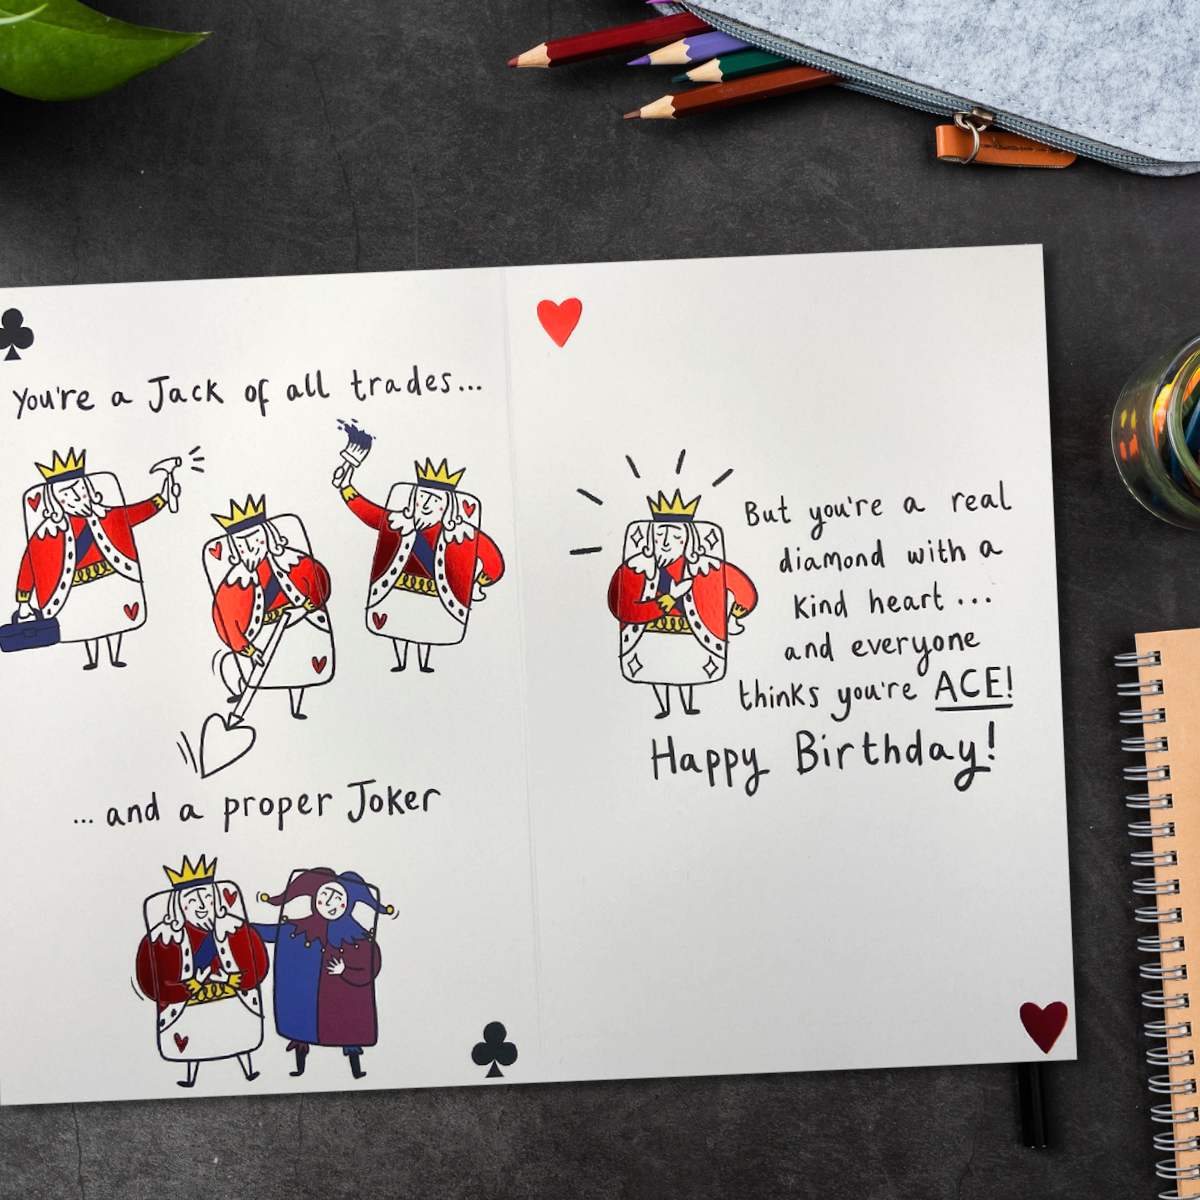 You're a Jack of all trades...
... and a proper Joker
But you're a real
diamond with a
kind heart...
and everyone
thinks you're ACE!
Happy Birthday!